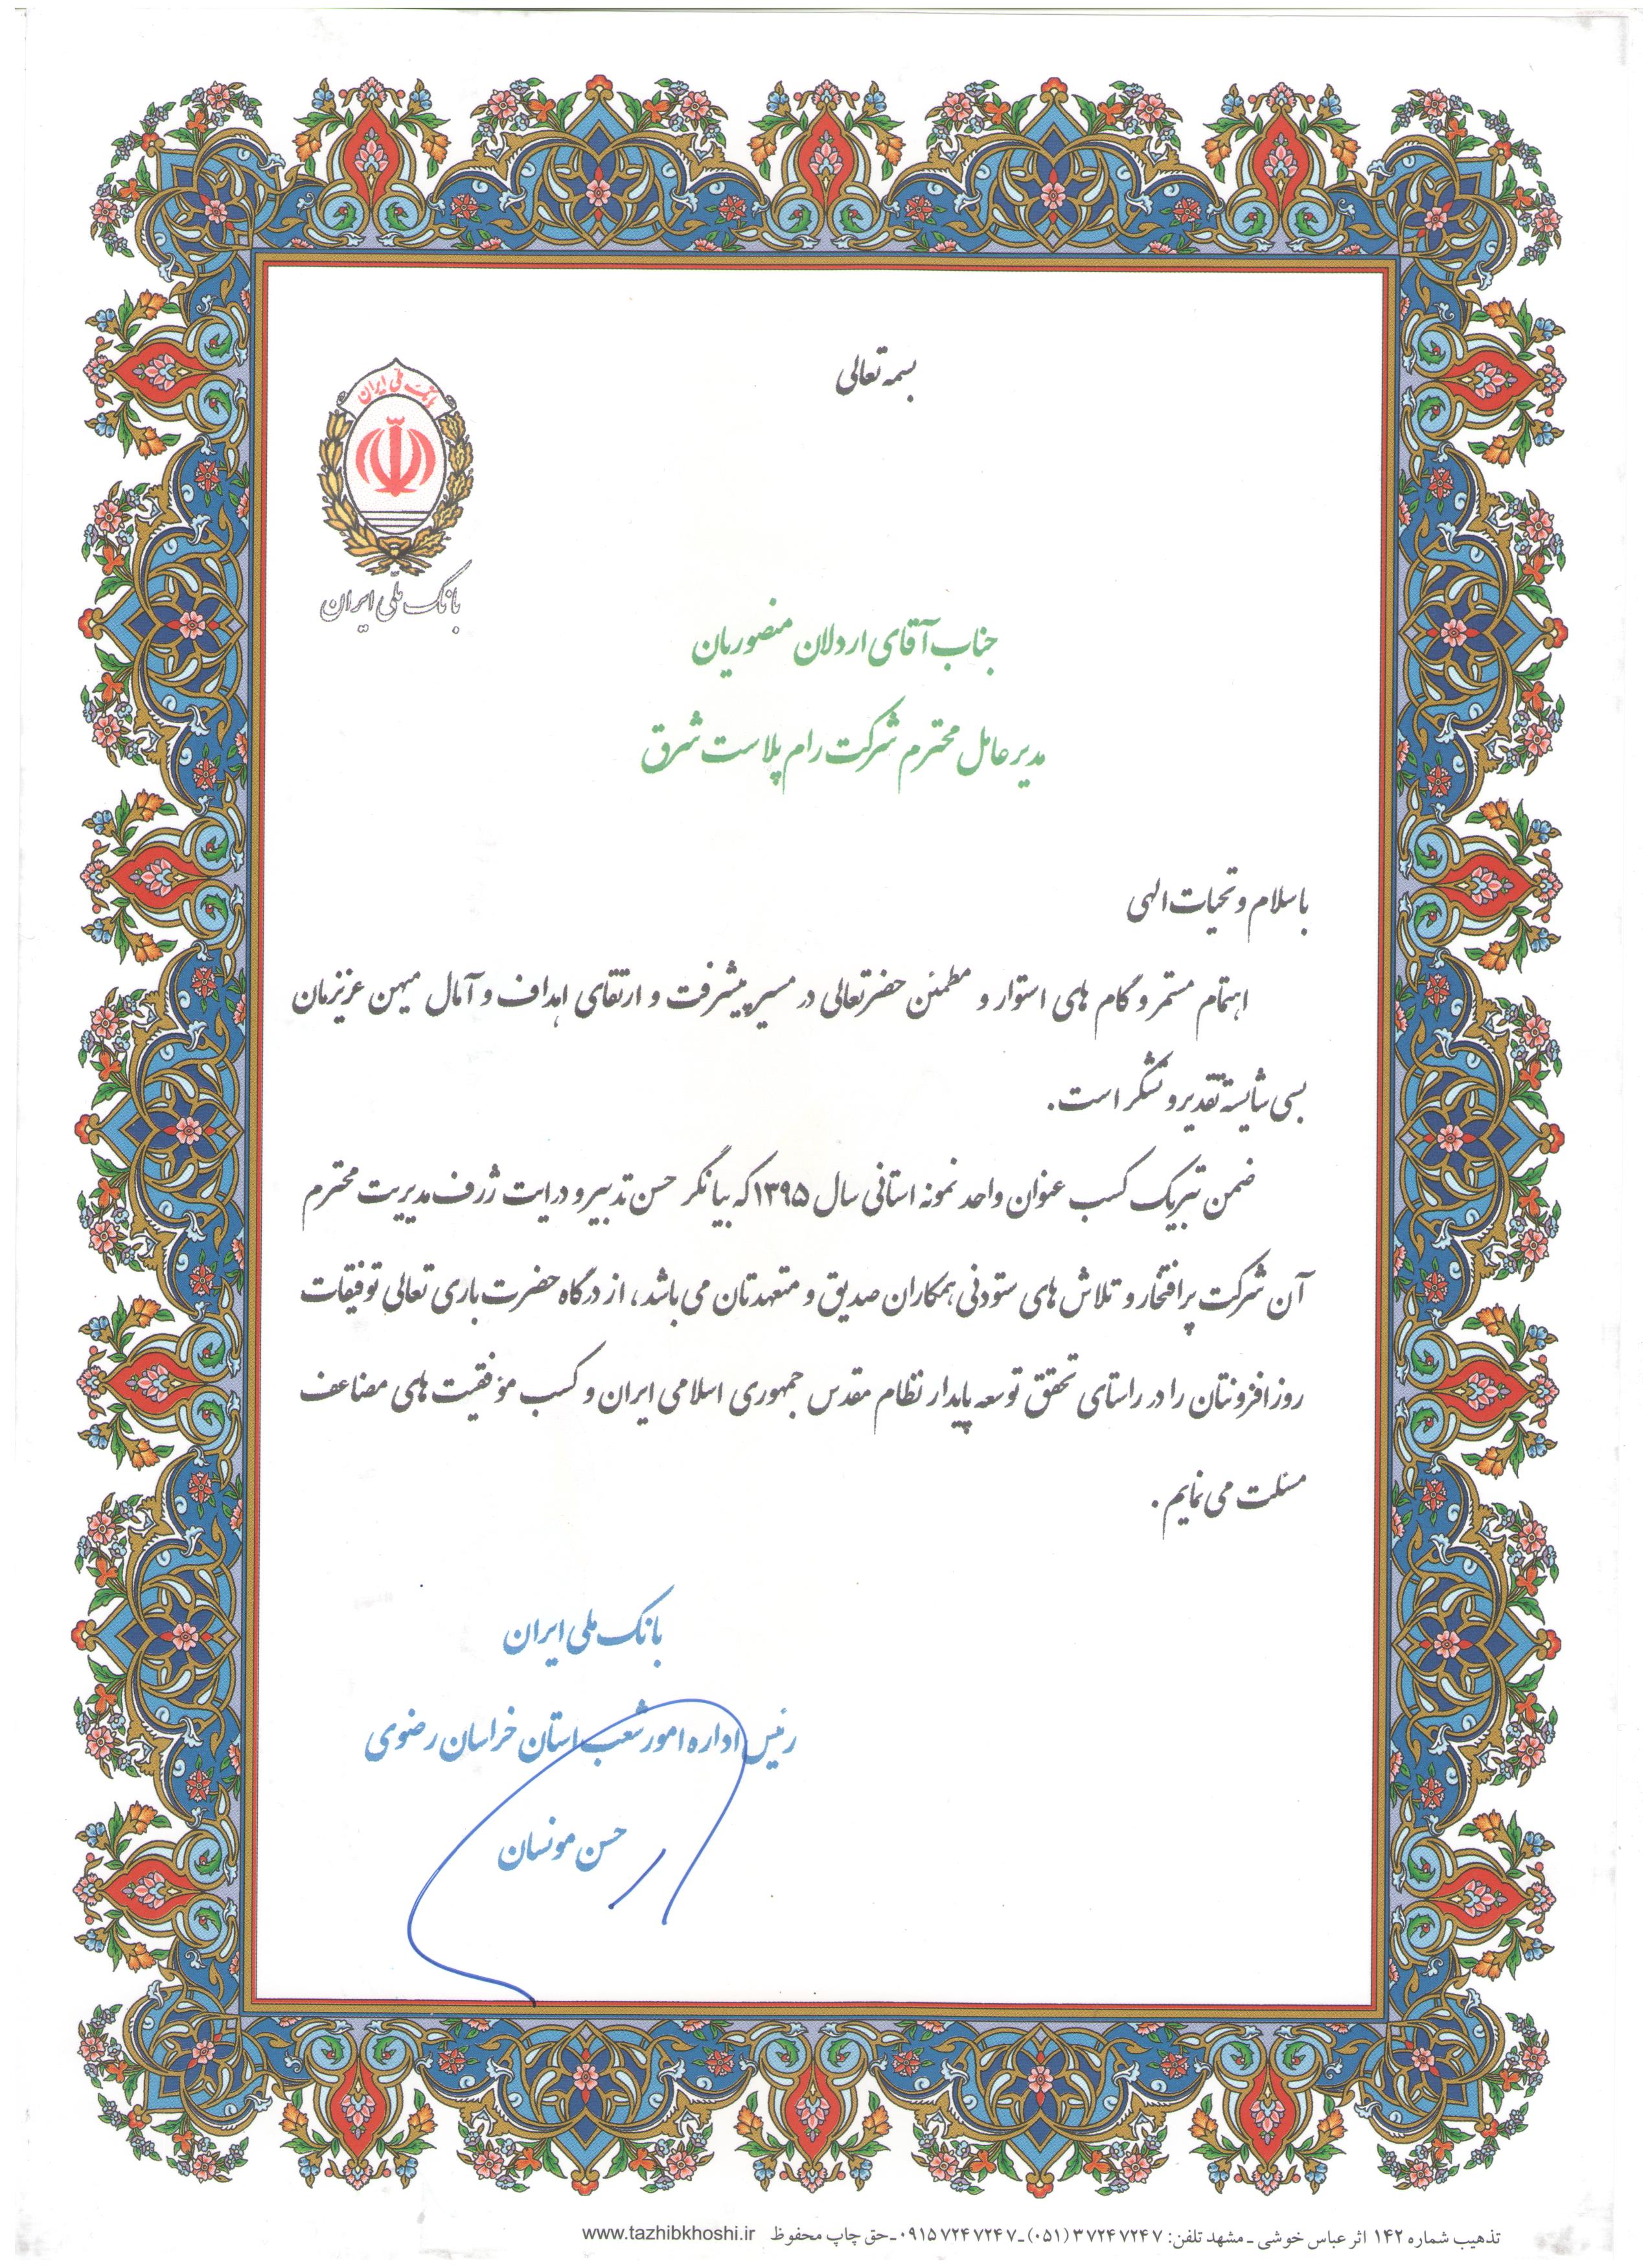 بسمه تعالی
بانک ملی ایران
بانک ملی ایران
جناب آقای اردلان منصوریان
مدیر عامل محترم شرکت رام پلاست شرق
با سلام و تحیات الهی
اهتمام مستمر و گام های استوار و مطمئن حضرتعالی در مسیر پیشرفت و ارتقای اهداف و آمال میهن عزیزمان
بسی شایسته تقدیر و تشکر است.
ضمن تبریک کسب عنوان واحد نمونه استانی سال ۱۳۹۵ که بیانگر حسن تدبیر و درایت ژرف مدیریت محترم
آن شرکت پرافتخار و تلاش های ستودنی همکاران صدیق و متعهدتان می باشد، از درگاه حضرت باری تعالی توفیقات
روزافزونتان را در راستای تحقق توسعه پایدار نظام مقدس جمهوری اسلامی ایران و کسب موفقیت های مضاعف
مسئلت می نمایم.
بانک ملی ایران
رئیس اداره امور شعب استان خراسان رضوی
حسن مونسان
تذهیب شماره ۱۴۲ اثر عباس خوشی ـ مشهد تلفن: ۳۷۲۴۷۲۴۷ (۰۵۱) ـ ۰۹۱۵۷۲۴۷۲۴۷ ـ حق چاپ محفوظ www.tazhibkhoshi.ir